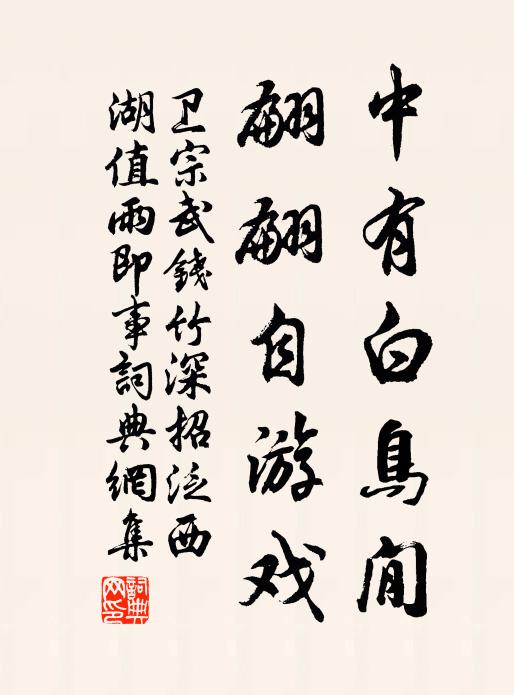 中有白鳥閒
翩翩自游戏
卫宗武錢竹深招泛西
湖值雨即事詞典網集